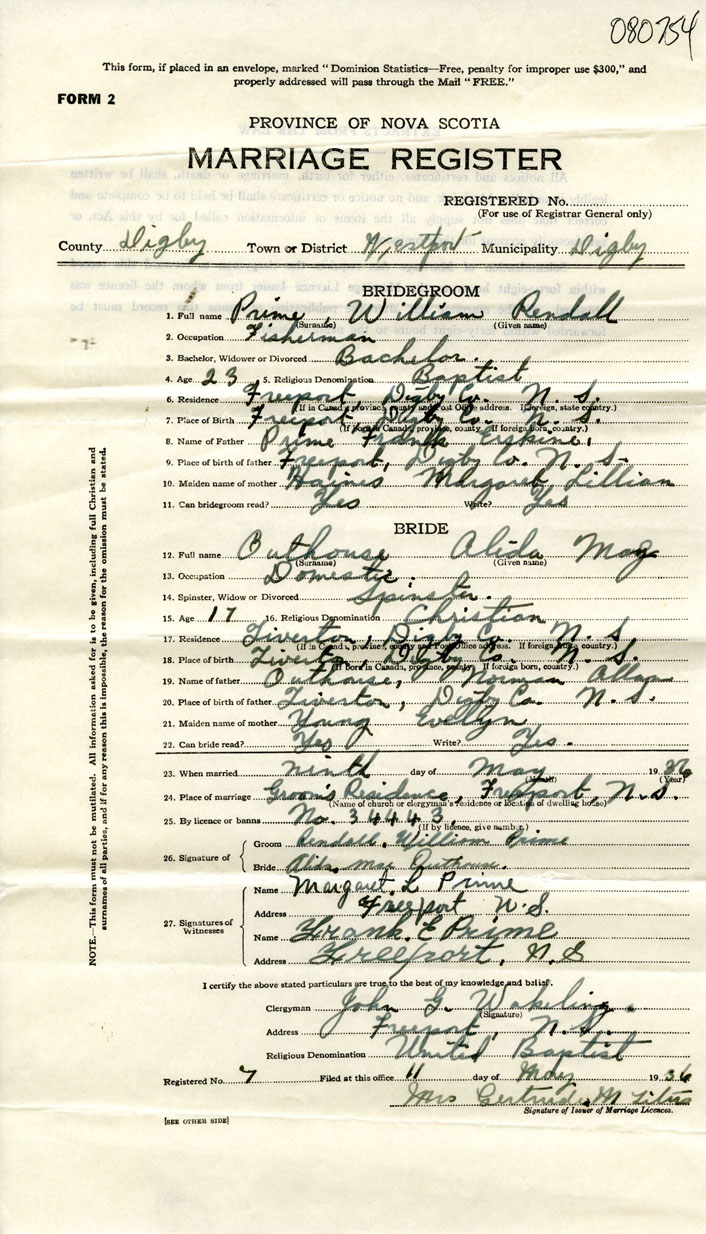 080754
This form, if placed in an envelope, marked "Dominion Statistics—Free, penalty for improper use $300," and
properly addressed will pass through the Mail "FREE."
FORM 2
PROVINCE OF NOVA SCOTIA
MARRIAGE REGISTER
REGISTERED No.
(For use of Registrar General only)
County Digby Town or District Westport Municipality Digby
BRIDEGROOM
1. Full name Prime, William Rendall
(Surname) (Given name)
2. Occupation Fisherman
3. Bachelor, Widower or Divorced Bachelor.
4. Age 23 5. Religious Denomination Baptist
6. Residence Freeport, Digby Co. N. S.
(If in Canada, province, county and Post Office address. If foreign, state country.)
7. Place of Birth Freeport, Digby Co. N. S.
(If born in Canada, province, county. If foreign born, country.)
8. Name of Father Prime, Frank Erskine,
9. Place of birth of father Freeport, Digby Co. N. S.
10. Maiden name of mother Haines Margaret Lillian
11. Can bridegroom read? Yes Write? Yes
BRIDE
12. Full name Outhouse Alida May
(Surname) (Given name)
13. Occupation Domestic.
14. Spinster, Widow or Divorced Spinster.
15. Age 17 16. Religious Denomination Christian
17. Residence Tiverton, Digby Co. N. S
(If in Canada, province, county and Post Office address. If foreign, state country.)
18. Place of birth Tiverton, Digby Co. N. S.
(If born in Canada, province, county. If foreign born, country.)
19. Name of father Outhouse, Norman Allan
20. Place of birth of father Tiverton, Digby Co. N. S.
21. Maiden name of mother Young Evelyn
22. Can bride read? Yes Write? Yes.
23. When married ninth day of May 1936
(Month) (Year)
24. Place of marriage Groom's Residence, Freeport, N. S.
(Name of church or clergyman's residence or location of dwelling house)
25. By licence or banns No. 34443.
(If by licence, give number.)
26. Signature of
Groom Rendall. William Prime
Bride Alida May Outhouse.
27. Signatures of Witnesses
Name Margaret. L Prime
Address Freeport N.S.
Name Frank. E Prime
Address Freeport, N. S
I certify the above stated particulars are true to the best of my knowledge and belief.
Clergyman John G. Wakeling.
(Signature)
Address Freeport, N. S.
Religious Denomination United Baptist
Registered No. 7 Filed at this office 11 day of May 1936
Mrs Gertrude M
Signature of Issuer of Marriage Licences.
[SEE OTHER SIDE]
NOTE.—This form must not be mutilated. All information asked for is to be given, including full Christian and
surnames of all parties, and if for any reason this is impossible, the reason for the omission must be stated.